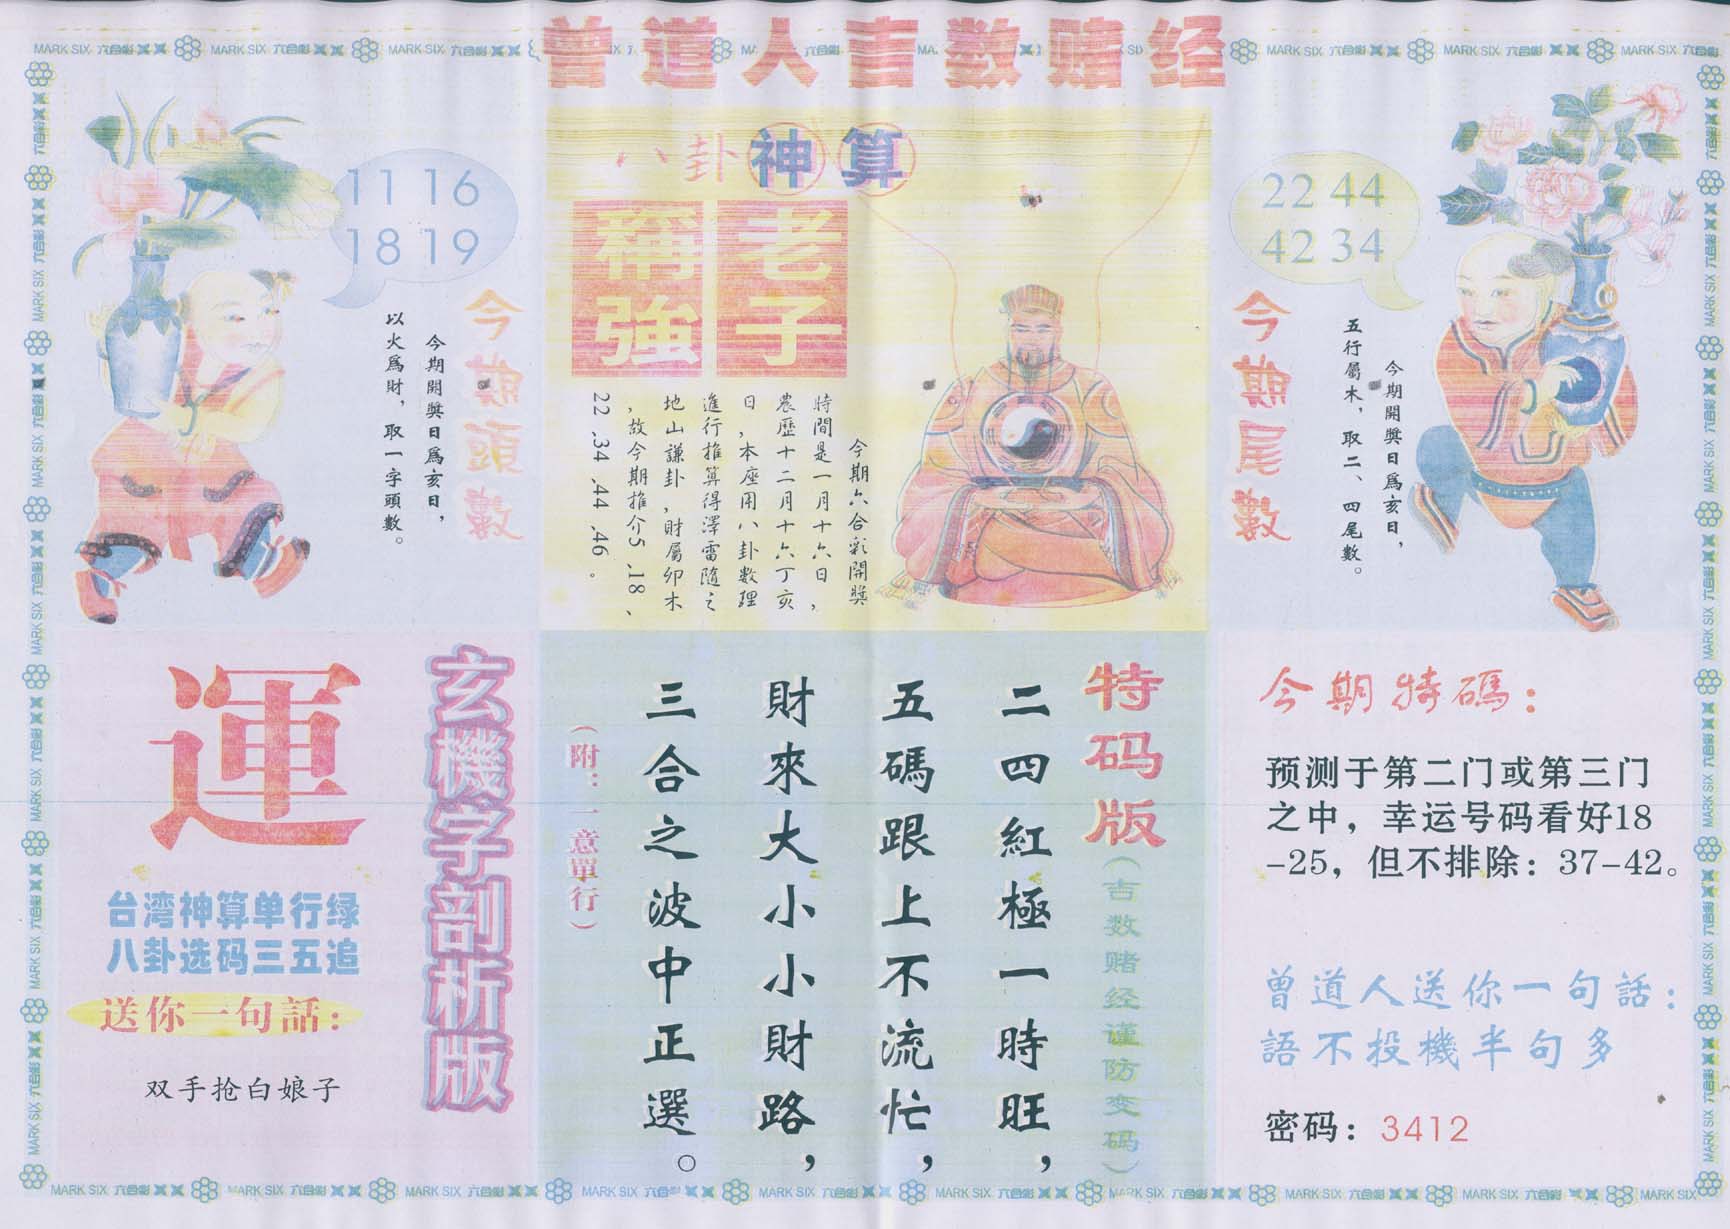 曾道人吉数赌经
八卦神算
老子
稱強
今期六合彩開獎
時間是一月十六日，
農歷十二月十六丁亥
日，本座用八卦數理
進行推算得澤雷隨之
地山謙卦，財屬卯木
，故今期推介5、18、
22、34、44、46。
11 16
18 19
今期頭數
今期開獎日爲亥日，
以火爲財，取一字頭數。
22 44
42 34
今期尾數
今期開獎日爲亥日，
五行屬木，取二、四尾數。
玄機字剖析版
運
台湾神算单行绿
八卦选码三五追
送你一句話：
双手抢白娘子
特码版
（吉数赌经谨防变码）
二四紅極一時旺，
五碼跟上不流忙，
財來大小小財路，
三合之波中正選。
（附：一意單行）
今期特碼：
预测于第二门或第三门
之中，幸运号码看好18
-25，但不排除：37-42。
曾道人送你一句話：
語不投機半句多
密码：3412
MARK SIX 六合彩